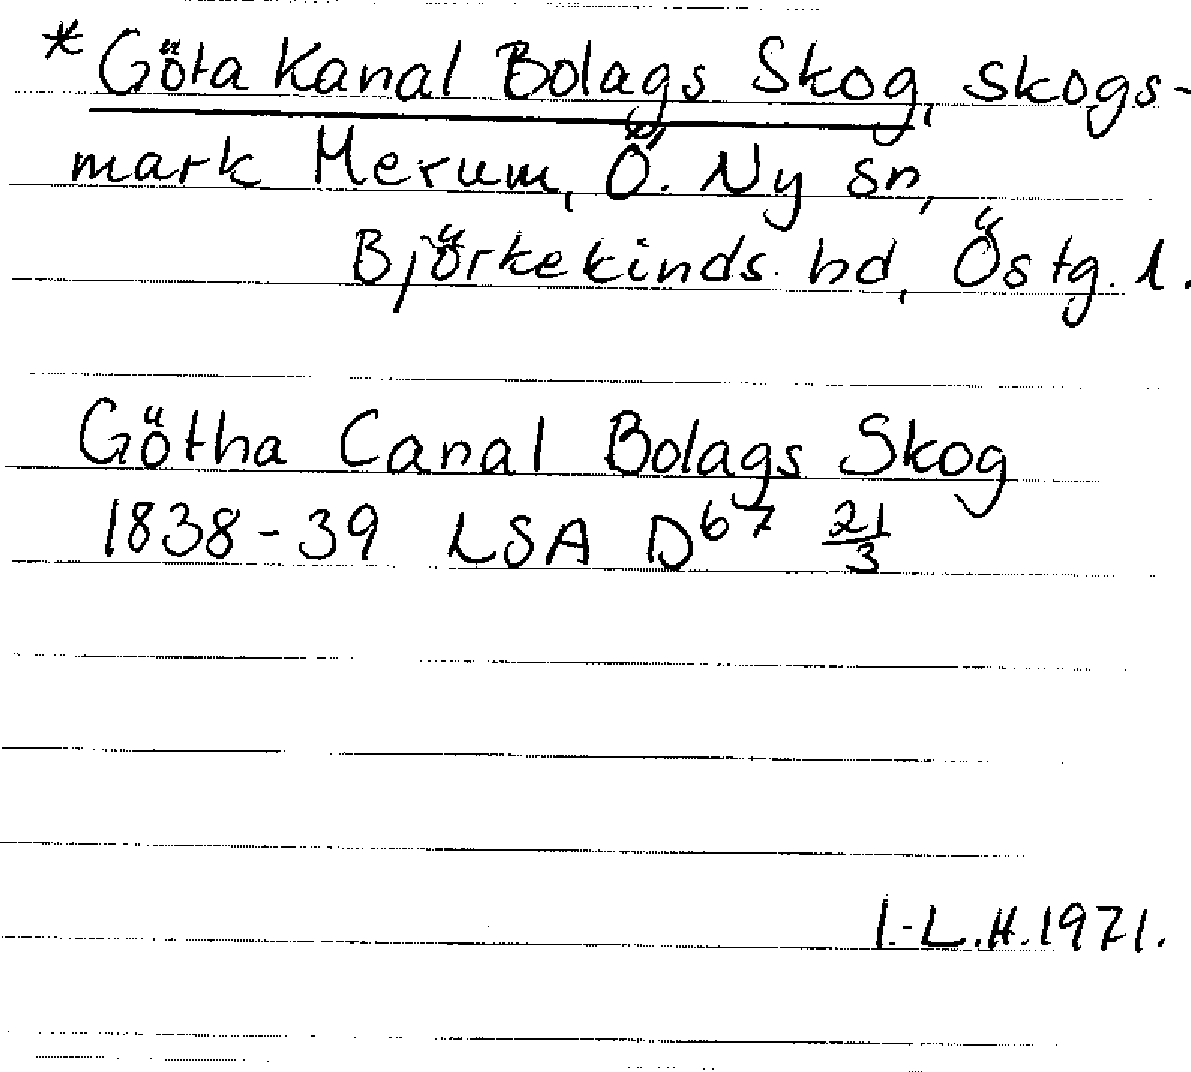 *Göta Kanal Bolags Skog, skogs-
mark Herum, Ö. Ny sn,
Björkekinds hd, Östg. l.
Götha Canal Bolags Skog
1838-39 LSA D67 21/3
I.-L.H.1971.